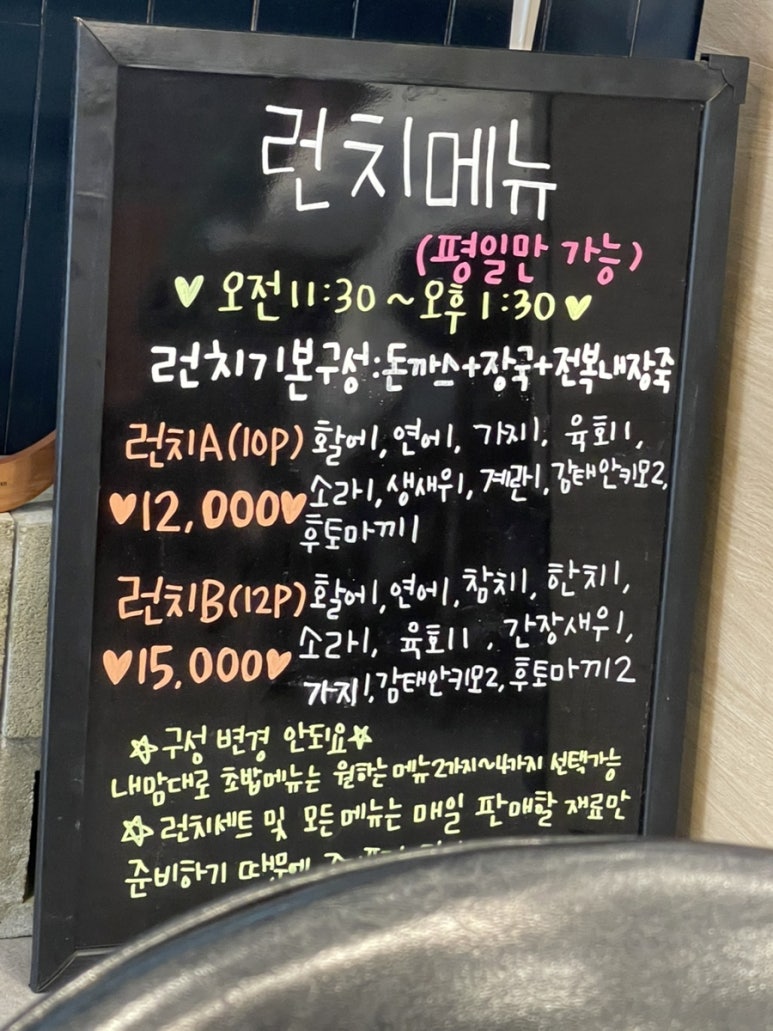 런치메뉴
(평일만 가능)
오전 11:30 ~ 오후 1:30
런치기본구성:돈까스+장국+전복내장죽
런치A(10P) 활어1, 연어1, 가지1, 육회1,
12,000 소라1, 생새우1, 계란1, 감태안키모2,
후토마끼1
런치B(12P) 활어1, 연어1, 참치1, 한치1,
15,000 소라1, 육회1, 간장새우1,
가지1, 감태안키모2, 후토마끼2
☆구성 변경 안되요☆
내맘대로 초밥메뉴는 원하는 메뉴2가지~4가지 선택가능
☆런치세트 및 모든메뉴는 매일 판매할 재료만
준비하기 때문에